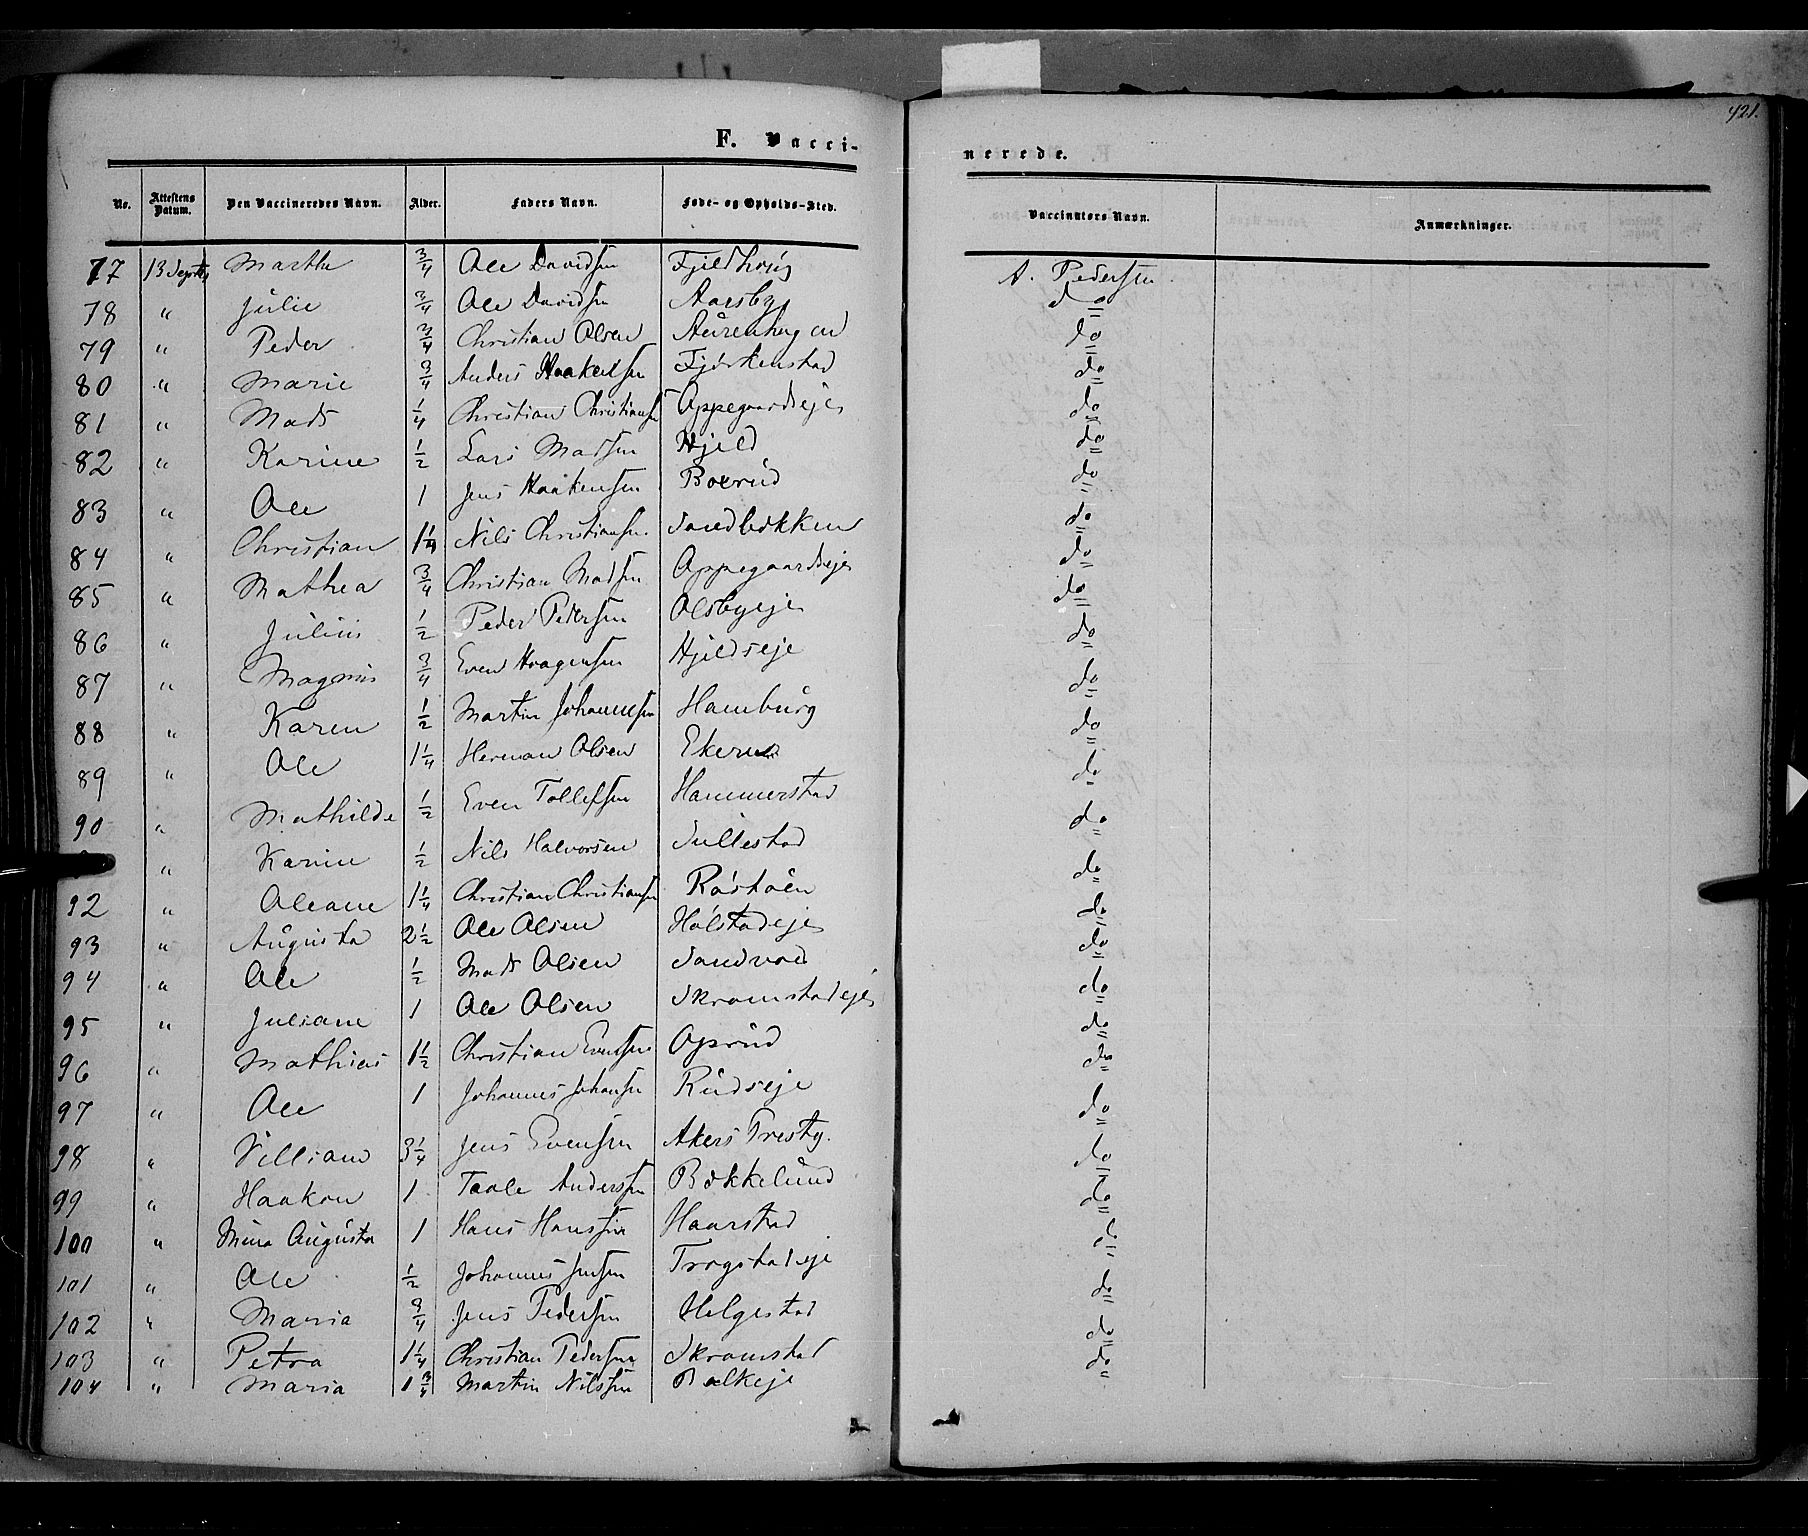 421.
F. Vacci-
nerede.
No. Attestens Datum. Den Vaccineredes Navn. Alder. Faders Navn. Føde- og Opholds-Sted. Vaccinateurs Navn. Anmærkninger.
77 13 Septb Marthe 3/4 Ole Davidsen Fjeldhoug A. Pedersen
78 " Julie 3/4 Ole Davidsen Aarsby do
79 " Peder 3/4 Christian Olsen Aurenhugen do
80 " Marie 3/4 Anders Haakensen Fjørkenstad do
81 " Mads 1/4 Christian Christiansen Oppegaardseje do
82 " Karine 1/2 Lars Madsen Hjeld do
83 " Ole 1 Jens Haakensen Boerud do
84 " Christian 1 1/4 Nils Christiansen Sandbekken do
85 " Mathea 3/4 Christian Madsen Oppegaardseje do
86 " Julius 1/2 Peder Pedersen Olsbyeje do
87 " Magnus 3/4 Even Haagensen Hjeldseje do
88 " Karen 1/2 Martin Johannesen Hamburg do
89 " Ole 1 1/4 Herman Olsen Ekerud do
90 " Mathilde 1/2 Even Tollefsen Hammerstad do
" Karine 1/2 Nils Halvorsen Sullestad do
92 " Oleane 1 1/4 Christian Christiansen Røstøen do
93 " Augusta 2 1/2 Ole Olsen Holstadeje do
94 " Ole 1/2 Mads Olsen Sandvad do
95 " Juliane 1 Ole Olsen Skramstadeje do
96 " Mathias 1 1/2 Christian Evensen Oprud do
97 " Ole 1 Johannes Johansen Rudseje do
98 " Villiam 3 1/4 Jens Evensen Akers Prestg. do
99 " Haakon 1 Taale Andersen Bækkelund do
100 " Mina Augusta 1 Hans Hansen Haarstad do
101 " Ole 1/2 Johannes Jensen Trogstadeje do
102 " Maria 3/4 Jens Pedersen Helgestad do
103 " Petra 1 1/4 Christian Pedersen Skramstad do
104 " Maria 1 3/4 Martin Nilssen Balkeje do